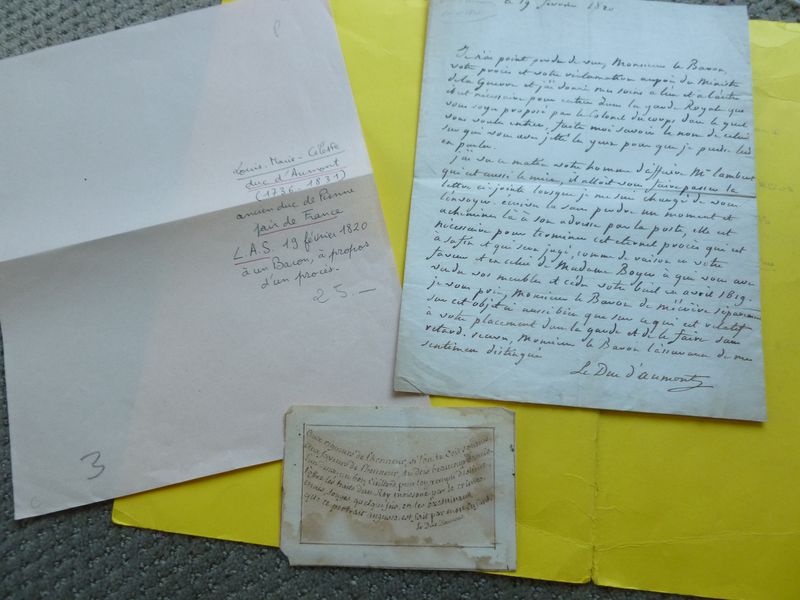 Louis-Marie-Céleste
duc d'Aumont
(1736-1831)
ancien duc de Pienne
pair de France
L.A.S. 19 février 1820
à un Baron, à propos
d'un procès.
25.—
3
le 19 fevrier 1820
Je n'ai point perdu de vue, Monsieur le Baron,
votre procès et votre réclamation auprès du Ministre
de la Guerre et j'ai donné mes soins a l'un et a l'autre
il est nécessaire pour entrer dans la garde Royale que
vous soyez proposé par le Colonel du corps dans le quel
vous voulez entrer, faite moi savoir le nom de celui
sur qui vous avez jetté les yeux pour que je puisse lui
en parler.
j'ai vu ce matin votre homme d'affaires Mr lambert
qui est aussi le mien, il alloit vous faire passer la
lettre ci jointe lorsque je me suis chargé de vous
l'envoyer. écrivez la sans perdre un moment et
acheminez la à son adresse par la poste, elle est
nécessaire pour terminer cet éternel procès qui est
à sa fin et qui sera jugé, comme de raison en votre
faveur et en celui de Madame Boyer à qui vous avez
vendu vos meubles et cédé votre bail en avril 1819.
je vous prie, Monsieur le Baron de m'écrire séparement
sur cet objet ci aussi bien que sur ce qui est relatif
à votre placement dans la garde et de le faire sans
retard. recevez, Monsieur le Baron l'assurance de mes
sentimens distingués
Le Duc d'aumont
de l'honneur, si l'on te
aux faveurs de l'honneur,
un bon
les traits d'un Roy moissonné par le crime.
Mais, songes quelques fois, en les examinant,
que ce portrait auguste, est fait par
le Duc